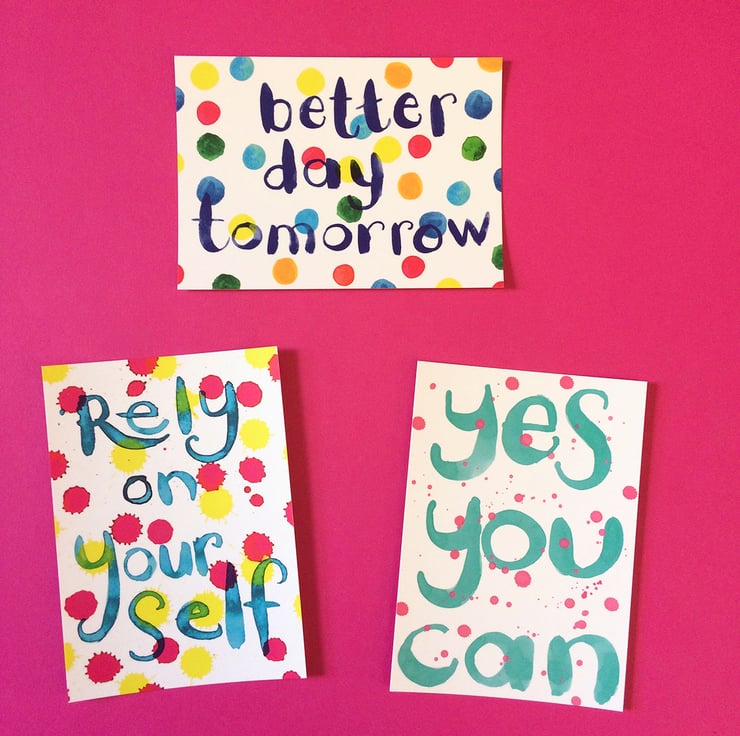 better
day
tomorrow
Rely
on
your
self
yes
you
can